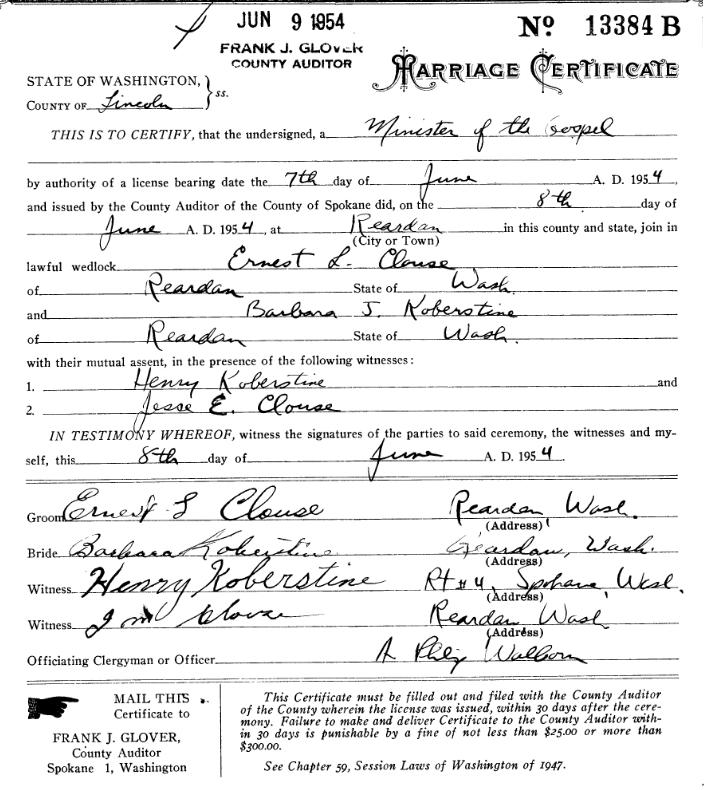 JUN 9 1954
Nº 13384 B
FRANK J. GLOVER
COUNTY AUDITOR
MARRIAGE CERTIFICATE
STATE OF WASHINGTON,
COUNTY OF Lincoln } ss.
THIS IS TO CERTIFY, that the undersigned, a Minister of the Gospel
by authority of a license bearing date the 7th day of June A. D. 1954,
and issued by the County Auditor of the County of Spokane did, on the 8th day of
June A. D. 1954, at Reardan in this county and state, join in
(City or Town)
lawful wedlock Ernest L. Clouse
of Reardan State of Wash.
and Barbara J. Koberstine
of Reardan State of Wash.
with their mutual assent, in the presence of the following witnesses:
1. Henry Koberstine and
2. Jesse E. Clouse
IN TESTIMONY WHEREOF, witness the signatures of the parties to said ceremony, the witnesses and my-
self, this 8th day of June A. D. 1954.
Groom Ernest L Clouse Reardan Wash.
(Address)
Bride Barbara Koberstine Reardan, Wash.
(Address)
Witness Henry Koberstine Rt #4, Spokane, Wash.
(Address)
Witness Clouse Reardan Wash
(Address)
Officiating Clergyman or Officer A Philip Walborn
MAIL THIS
Certificate to
FRANK J. GLOVER,
County Auditor
Spokane 1, Washington
This Certificate must be filled out and filed with the County Auditor
of the County wherein the license was issued, within 30 days after the cere-
mony. Failure to make and deliver Certificate to the County Auditor with-
in 30 days is punishable by a fine of not less than $25.00 or more than
$300.00.
See Chapter 59, Session Laws of Washington of 1947.